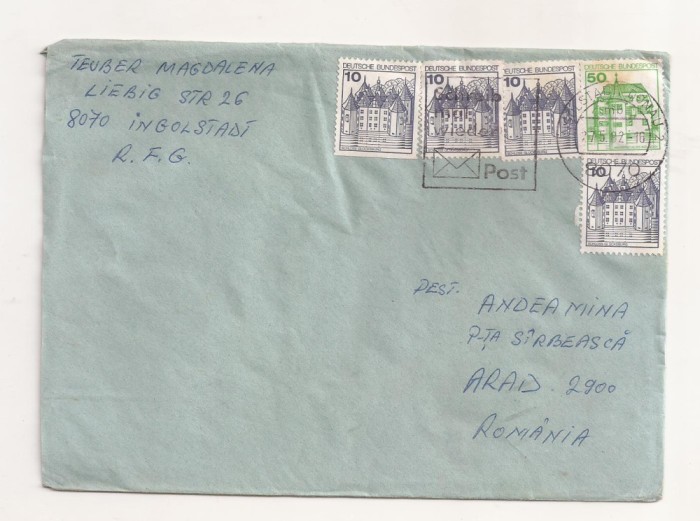 TEUBER MAGDALENA
LIEBIG STR 26
8070 INGOLSTADT
R.F.G.
10 DEUTSCHE BUNDESPOST
10 DEUTSCHE BUNDESPOST
10 DEUTSCHE BUNDESPOST
50 DEUTSCHE BUNDESPOST
Post
10 DEUTSCHE BUNDESPOST
DEST.
ANDEA MINA
P-ȚA SÎRBEASCĂ
ARAD 2900
ROMÂNIA